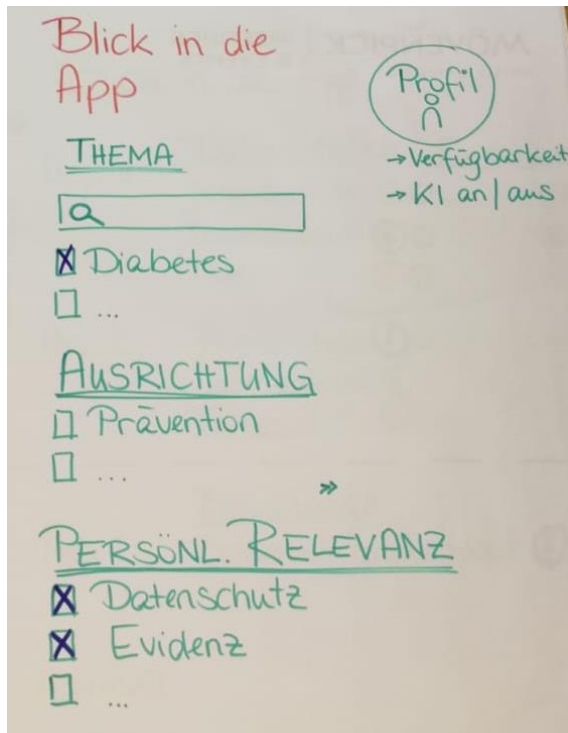 Blick in die
App
Profil
→ Verfügbarkeit
→ KI an | aus
THEMA
Diabetes
...
AUSRICHTUNG
Prävention
...
»
PERSÖNL. RELEVANZ
Datenschutz
Evidenz
...